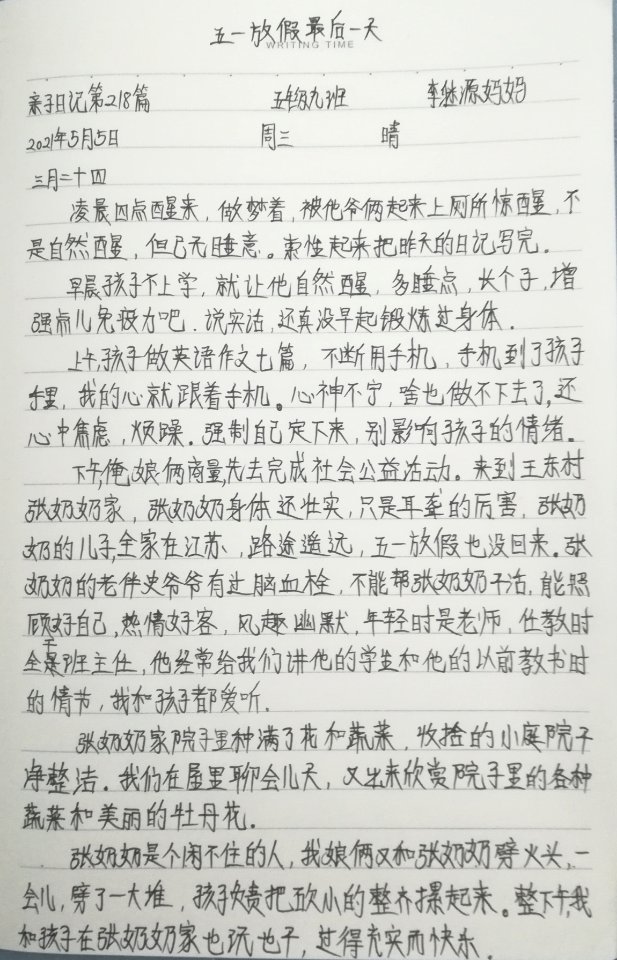 五一放假最后一天
WRITING TIME
亲子日记第218篇 五年级九班 李继源妈妈
2021年5月5日 周三 晴
三月二十四
凌晨四点醒来，做梦着，被他爷俩起来上厕所惊醒，不
是自然醒，但已无睡意。索性起来把昨天的日记写完。
早晨孩子不上学，就让他自然醒，多睡点，长个子，增
强点儿免疫力吧．说实话，还真没早起锻炼过身体．
上午，孩子做英语作文七篇，不断用手机，手机到了孩子
手里，我的心就跟着手机。心神不宁，啥也做不下去了，还
心中焦虑，烦躁．强制自己定下来，别影响孩子的情绪。
下午，俺娘俩商量，先去完成社会公益活动。来到王东村
张奶奶家，张奶奶身体还壮实，只是耳聋的厉害，张奶
奶的儿子，全家在江苏、路途遥远，五一放假也没回来．张
奶奶的老伴史爷爷有过脑血栓，不能帮张奶奶干活，能照
顾好自己，热情好客，风趣幽默，年轻时是老师，任教时
全是班主任，他经常给我们讲他的学生和他的以前教书时
的情节，我和孩子都爱听．
张奶奶家院子里种满了花和蔬菜，收捡的小庭院干
净整洁．我们在屋里聊会儿天，又出来欣赏院子里的各种
蔬菜和美丽的牡丹花．
张奶奶是个闲不住的人，我娘俩又和张奶奶劈火头，一
会儿，劈了一大堆，孩子负责把砍小的整齐摞起来。整下午，我
和孩子在张奶奶家也玩也干，过得充实而快乐．